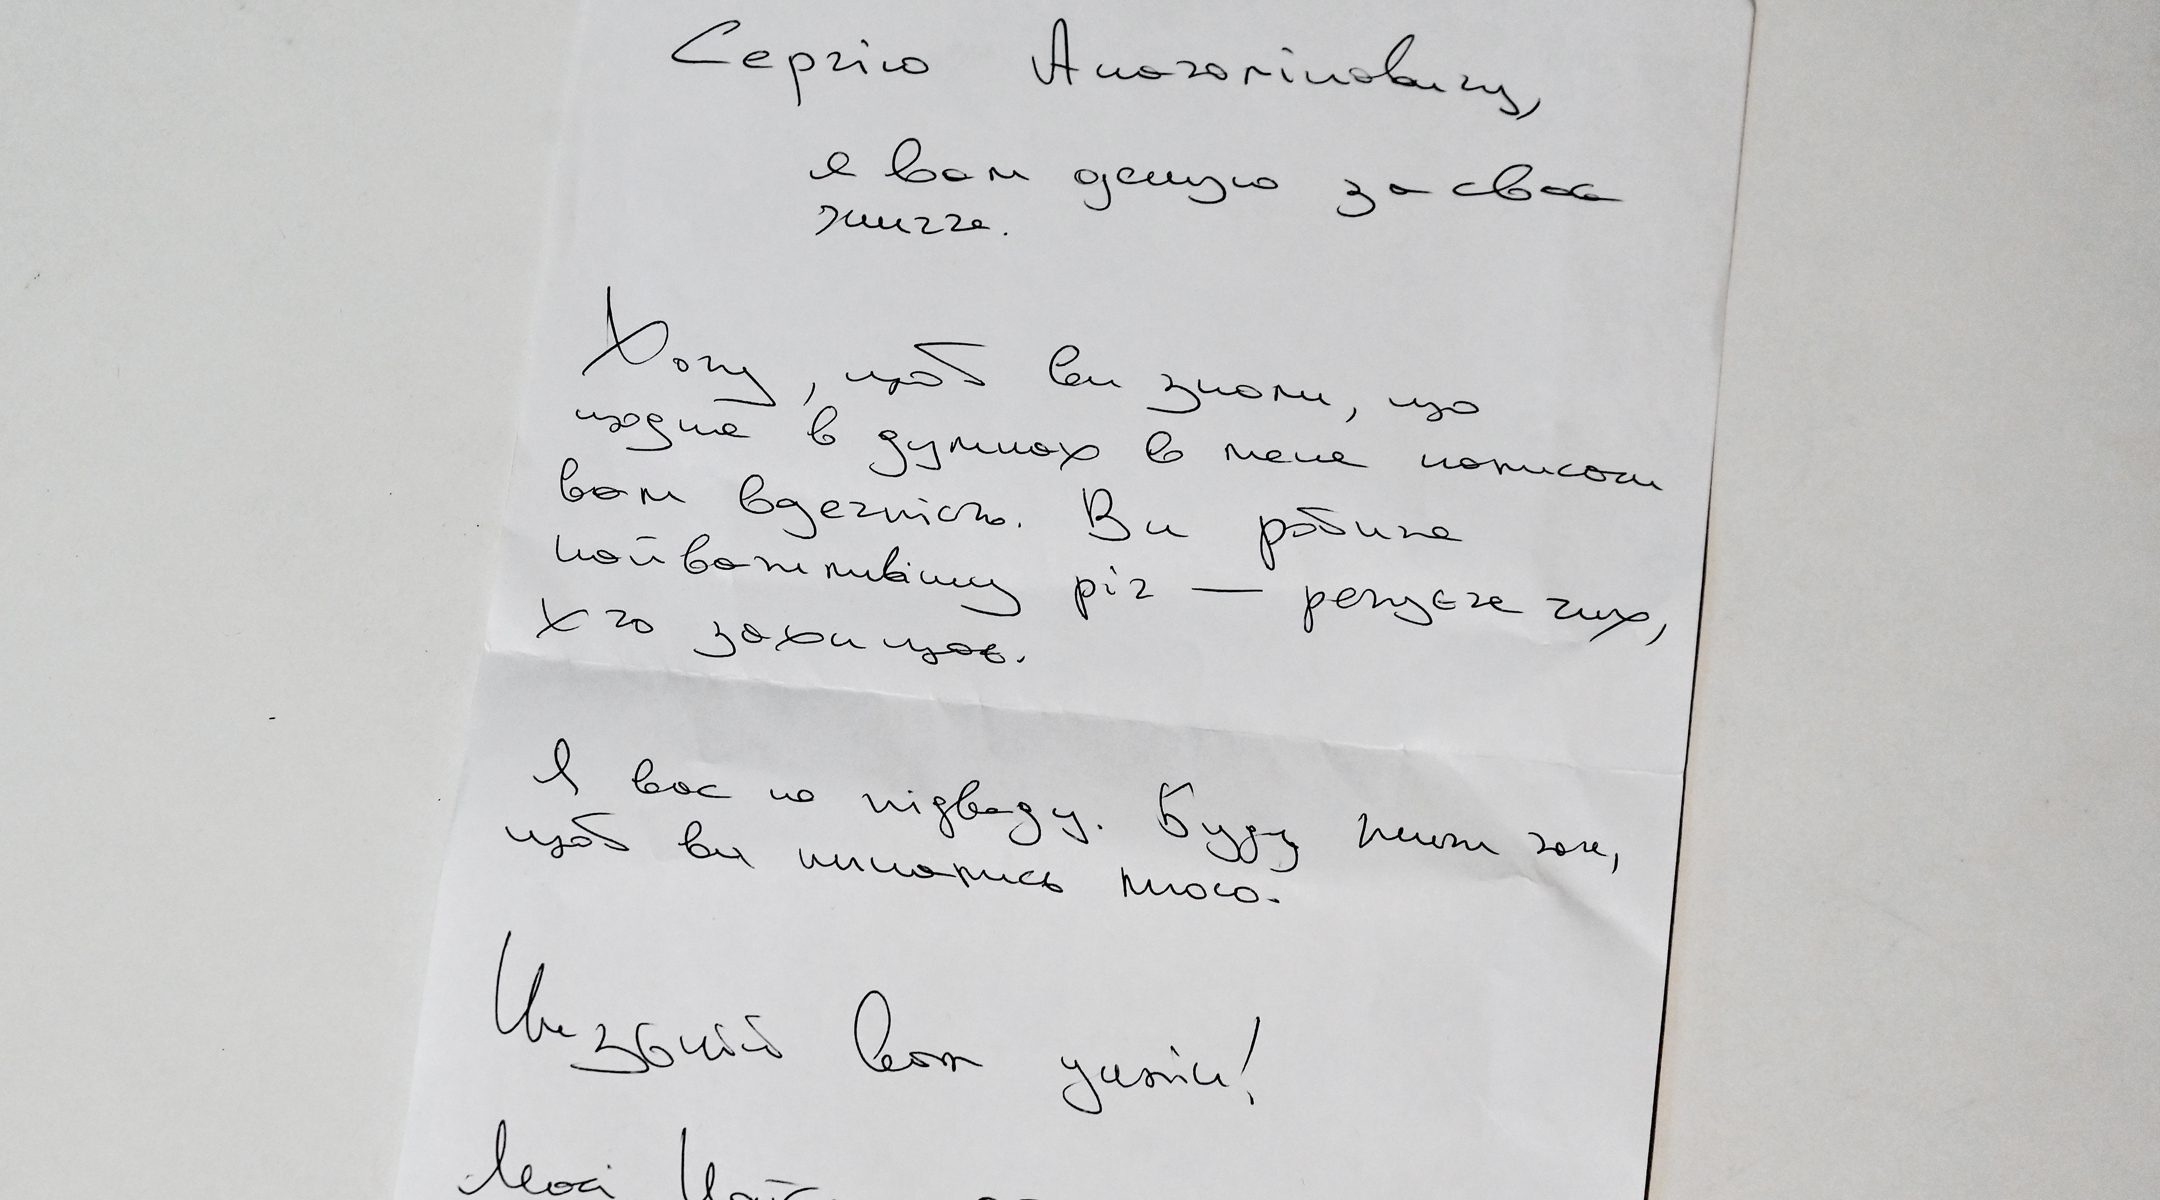 Сергію Анатолійовичу,
я вам дякую за своє
життя.
Хочу, щоб ви знали, що
щодня в думках в мене написати
вам вдячність. Ви робите
найважливішу річ — рятуєте тих,
хто захищає.
Я вас не підведу. Буду жити так,
щоб ви пишались мною.
Низький вам уклін!